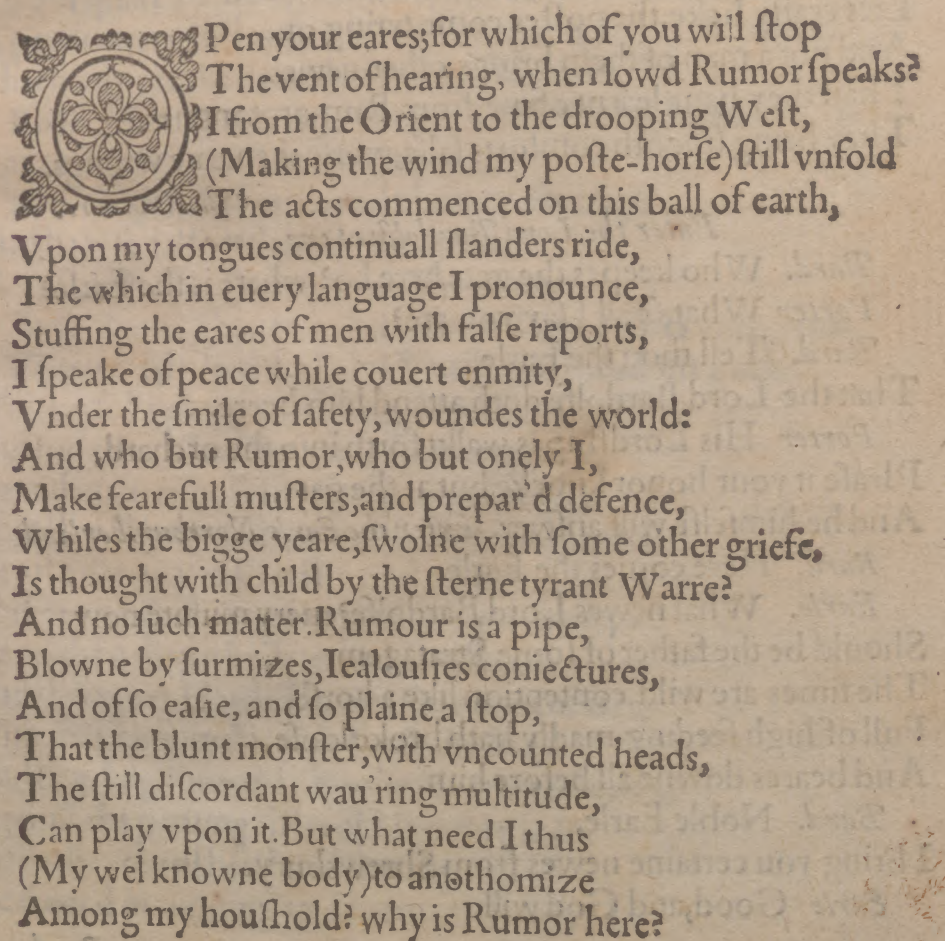 OPen your eares; for which of you will ſtop
The vent of hearing, when lowd Rumor ſpeaks?
I from the Orient to the drooping Weſt,
(Making the wind my poſte-horſe) ſtill vnfold
The acts commenced on this ball of earth,
Vpon my tongues continuall ſlanders ride,
The which in euery language I pronounce,
Stuffing the eares of men with falſe reports,
I ſpeake of peace while couert enmity,
Vnder the ſmile of ſafety, woundes the world:
And who but Rumor, who but onely I,
Make fearefull muſters, and prepar'd defence,
Whiles the bigge yeare, ſwolne with ſome other griefe,
Is thought with child by the ſterne tyrant Warre?
And no ſuch matter. Rumour is a pipe,
Blowne by ſurmizes, Iealouſies coniectures,
And of ſo eaſie, and ſo plaine a ſtop,
That the blunt monſter, with vncounted heads,
The ſtill diſcordant wau'ring multitude,
Can play vpon it. But what need I thus
(My wel knowne body) to anothomize
Among my houſhold? why is Rumor here?